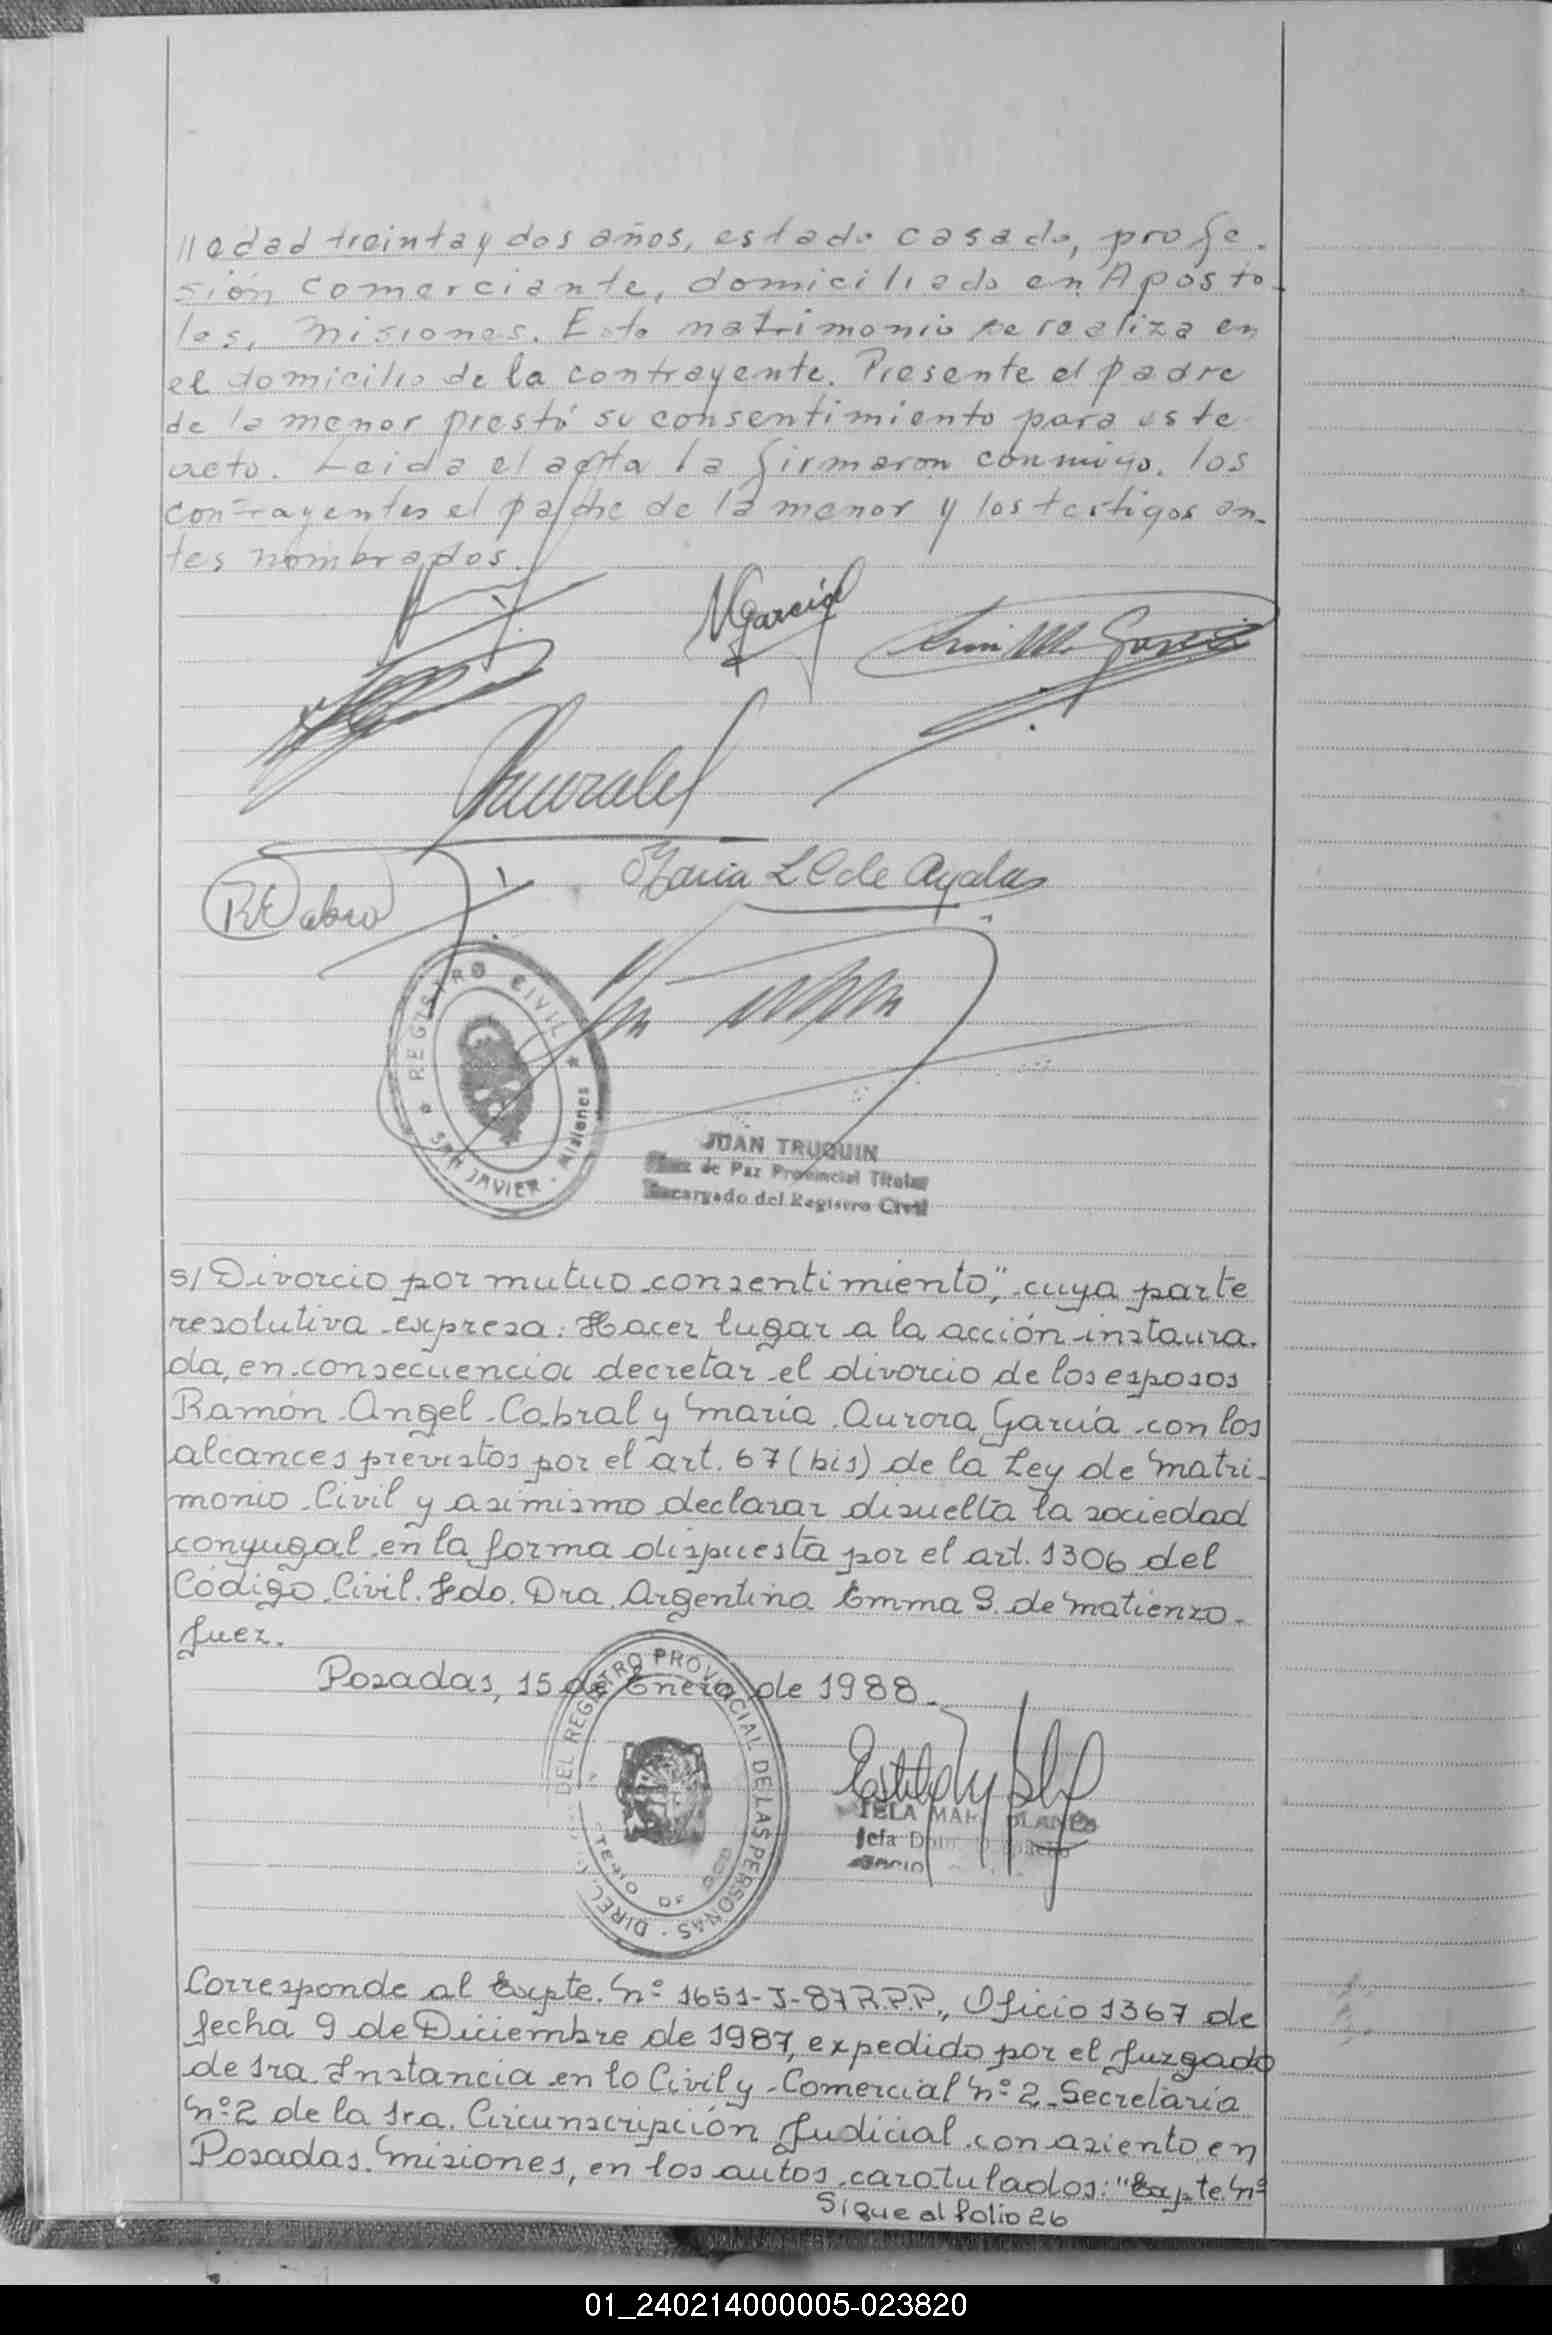 // edad treinta y dos años, estado casado, profe-
sión comerciante, domiciliado en Aposto-
les, Misiones. Este matrimonio se realiza en
el domicilio de la contrayente. Presente el padre
de la menor prestó su consentimiento para este
acto. Leida el acta la firmaron conmigo, los
contrayentes el padre de la menor y los testigos an-
tes nombrados.
MGarcia
Garcia
María L C de Ayala
REGISTRO CIVIL
SAN JAVIER - Misiones
JUAN TRUQUIN
Juez de Paz Provincial Titular
Encargado del Registro Civil
s/ Divorcio por mutuo consentimiento", cuya parte
resolutiva expresa: Hacer lugar a la acción instaura-
da, en consecuencia decretar el divorcio de los esposos
Ramón Angel Cabral y María Aurora García con los
alcances previstos por el art. 67 (bis) de la Ley de Matri-
monio Civil y asimismo declarar disuelta la sociedad
conyugal en la forma dispuesta por el art. 1306 del
Código Civil. Fdo. Dra. Argentina Emma S. de Matienzo-
Juez.
Posadas, 15 de Enero de 1988.-
DEL REGISTRO PROVINCIAL DE LAS PERSONAS
Corresponde al Expte. Nº 1651-J-87 R.P.P., Oficio 1367 de
fecha 9 de Diciembre de 1987, expedido por el Juzgado
de 1ra. Instancia en lo Civil y Comercial Nº 2 Secretaría
Nº 2 de la 1ra. Circunscripción Judicial con asiento en
Posadas. Misiones, en los autos caratulados: "Expte. Nº
Sigue al folio 26
01_240214000005-023820